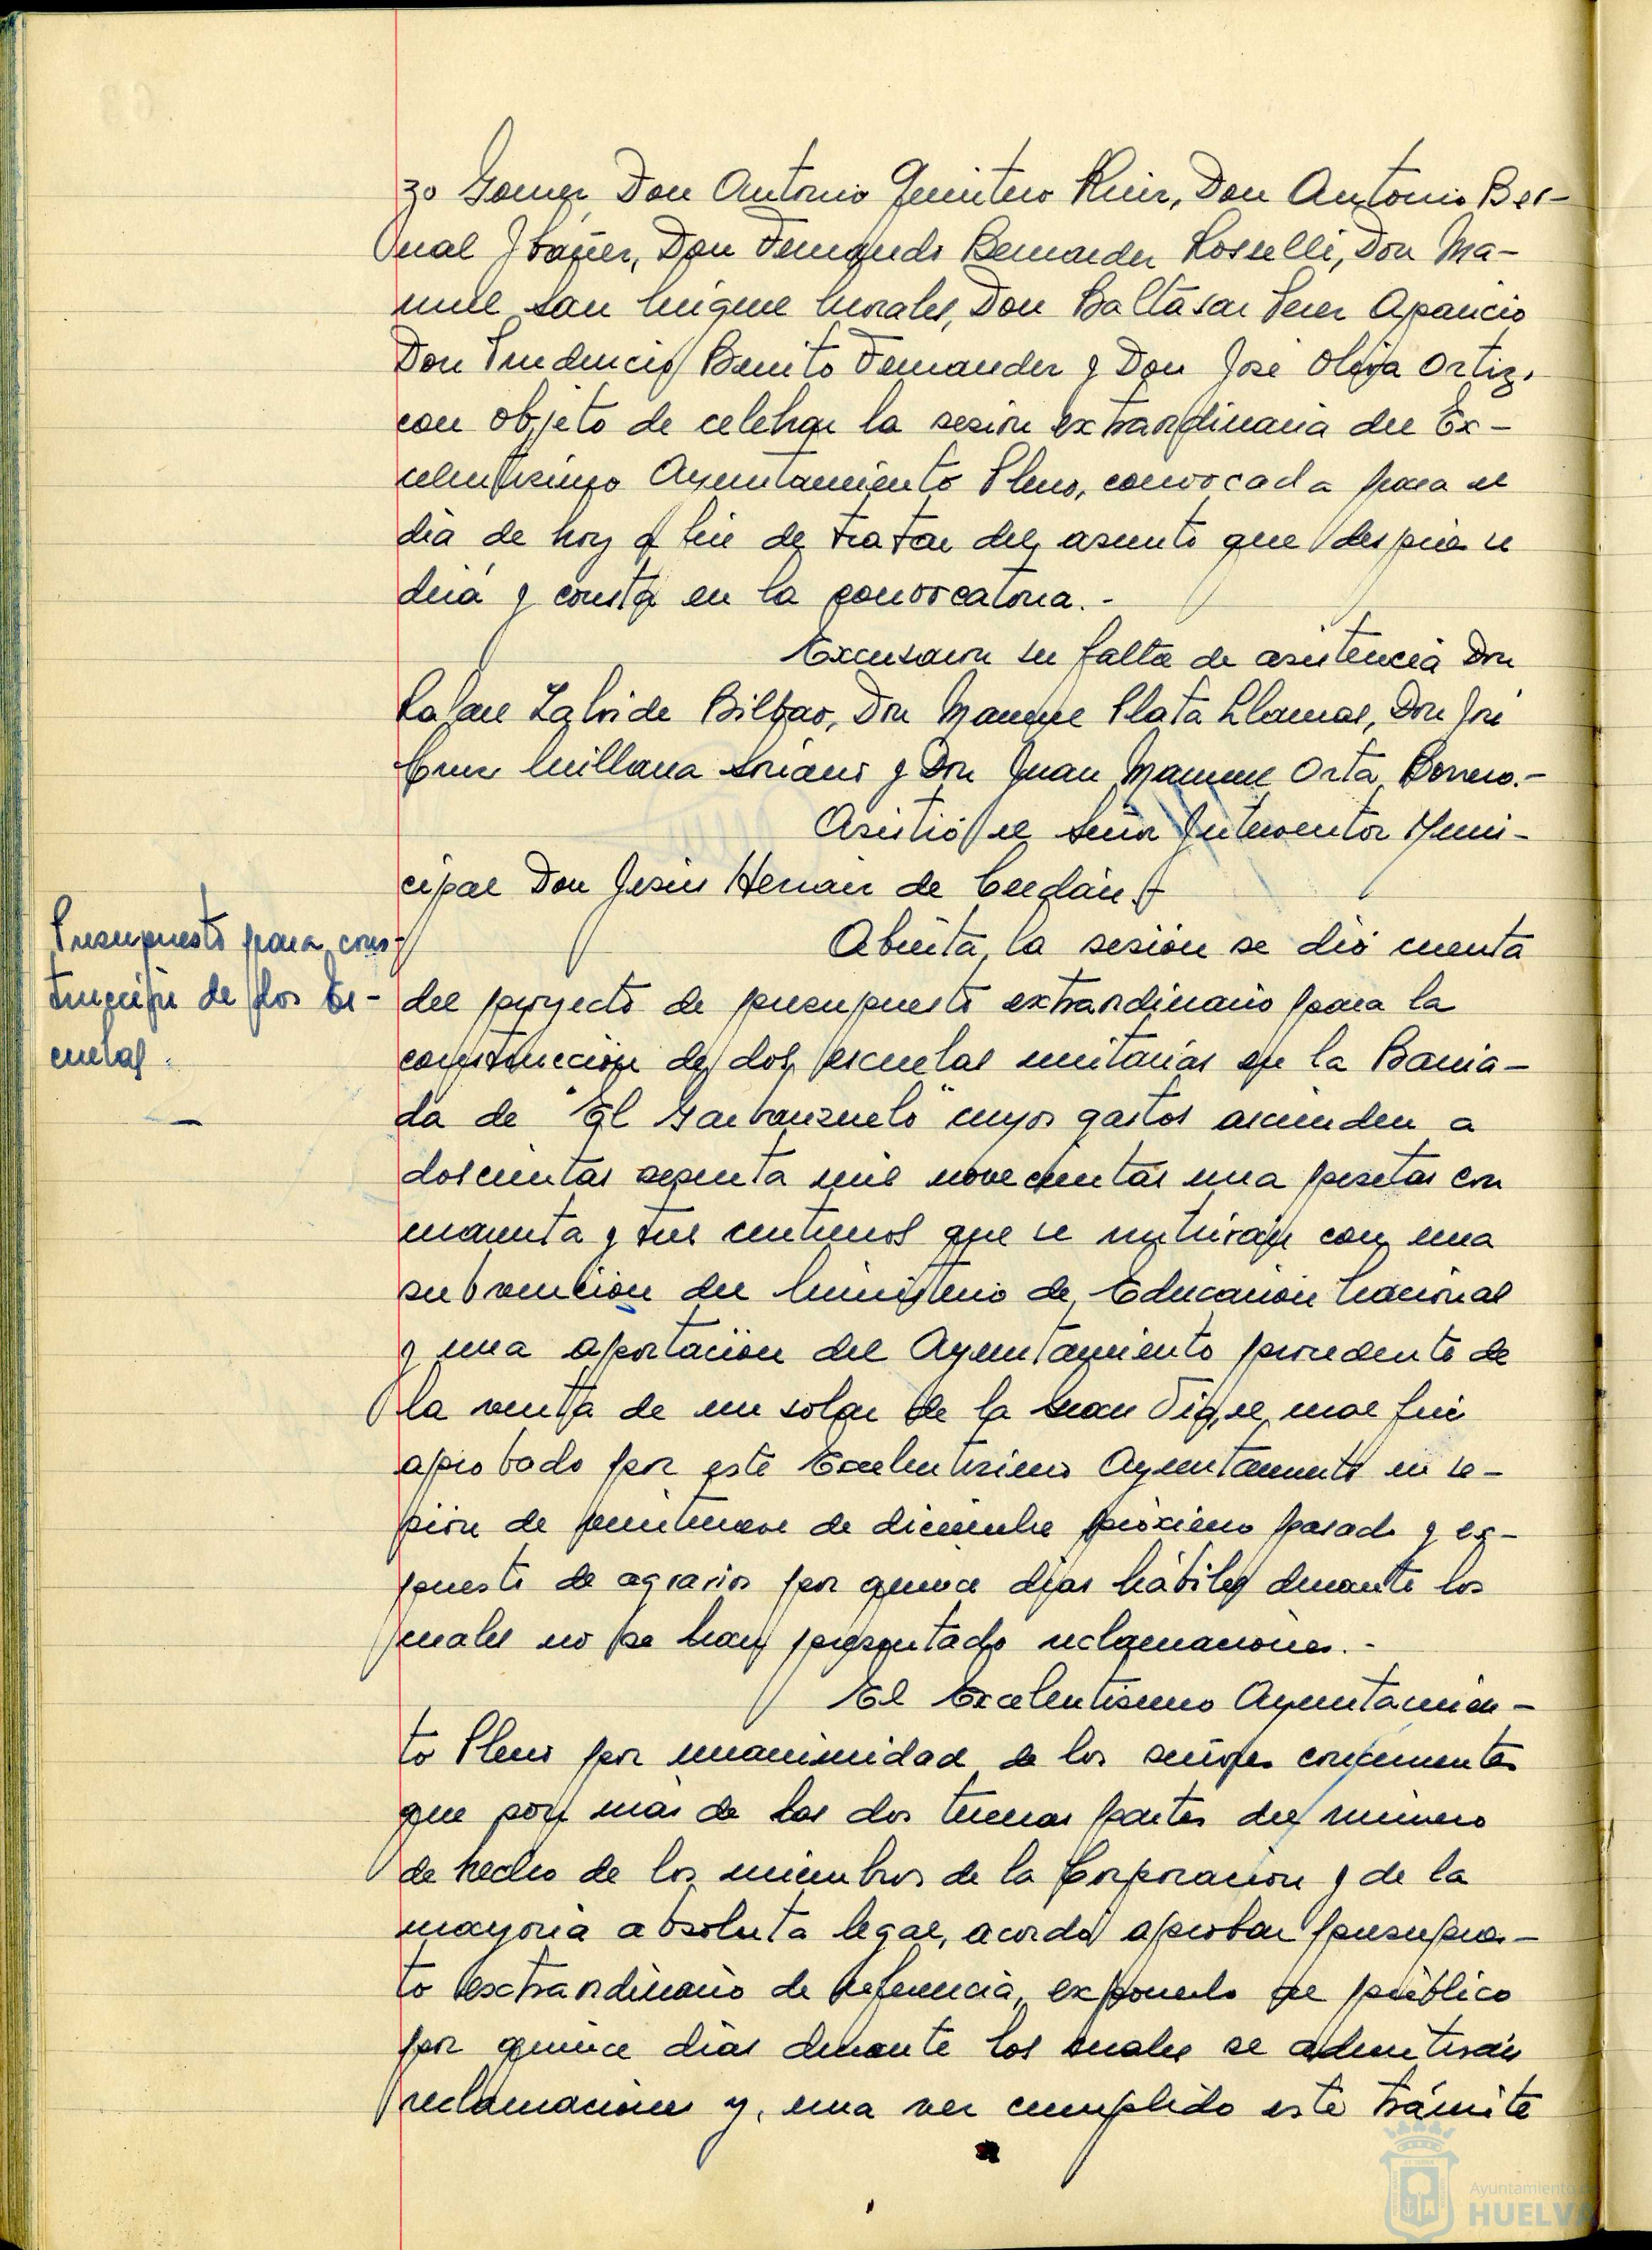 zo Gomez, Don Antonio Quintero Ruiz, Don Antonio Ber-
nal Ibáñez, Don Fernando Bernardez Rosselli, Don Ma-
nuel San Miguel Morales, Don Baltasar Perez Aparicio
Don Prudencio Benito Fernandez y Don José Oliva Ortiz,
con objeto de celebrar la sesión extraordinaria del Ex-
celentisimo Ayuntamiento Pleno, convocada para el
dia de hoy a fin de tratar del asunto que despues se
dirá y consta en la convocatoria.-
Excusaron su falta de asistencia Don
Rafael Bilbao, Don Manuel Plata Llamas, Don José
Cruz Millana Soriano y Don Juan Manuel Orta Borrero.-
Asistió el Señor Interventor Muni-
cipal Don Jesús Hernán de Cerdán.-
Presupuesto para cons-
trucción de dos Es-
cuelas.
Abierta la sesión se dió cuenta
del proyecto de presupuesto extraordinario para la
construcción de dos escuelas unitarias en la Barria-
da de "El Garbanzuelo" cuyos gastos ascienden a
doscientas sesenta mil novecientas una pesetas con
cuarenta y tres centimos que se nutrirán con una
subvención del Ministerio de Educación Nacional
y una aportación del Ayuntamiento procedente de
la venta de un solar de la Gran Via, el cual fué
aprobado por este Excelentisimo Ayuntamiento en se-
sión de veintinueve de diciembre próximo pasado y ex-
puesto de agravios por quince dias hábiles durante los
cuales no se han presentado reclamaciones.-
El Excelentisimo Ayuntamien-
to Pleno por unanimidad de los señores concurrentes
que son más de las dos terceras partes del número
de hecho de los miembros de la Corporación y de la
mayoria absoluta legal, acordó aprobar presupues-
to extraordinario de referencia, exponerlo al público
por quince dias durante los cuales se admitirán
reclamaciones y, una vez cumplido este trámite
Ayuntamiento de
HUELVA